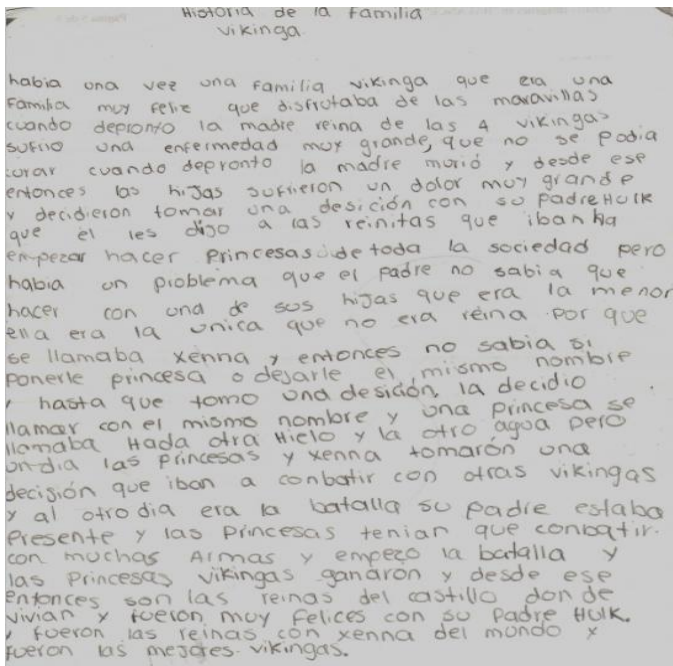 Historia de la familia
vikinga
habia una vez una familia vikinga que era una
familia muy feliz que disfrutaba de las maravillas
cuando depronto la madre reina de las 4 vikingas
sufrio una enfermedad muy grande, que no se podia
curar cuando depronto la madre murió y desde ese
entonces las hijas sufrieron un dolor muy grande
y decidieron tomar una desición con su padre Hulk
que él les dijo a las reinitas que iban ha
empezar hacer princesas de toda la sociedad pero
habia un problema que el padre no sabia que
hacer con una de sus hijas que era la menor
ella era la unica que no era reina por que
se llamaba xenna y entonces no sabia si
ponerle princesa o dejarle el mismo nombre
y hasta que tomo una desición, la decidio
llamar con el mismo nombre y una princesa se
llamaba Hada otra Hielo y la otro agua pero
un dia las princesas y xenna tomarón una
decisión que iban a conbatir con otras vikingas
y al otro dia era la batalla su padre estaba
presente y las princesas tenian que conbatir.
con muchas Armas y empezo la batalla y
las princesas vikingas ganarón y desde ese
entonces son las reinas del castillo don de
vivian y fueron muy felices con su padre Hulk.
y fueron las reinas con xenna del mundo y
fueron las mejores vikingas.